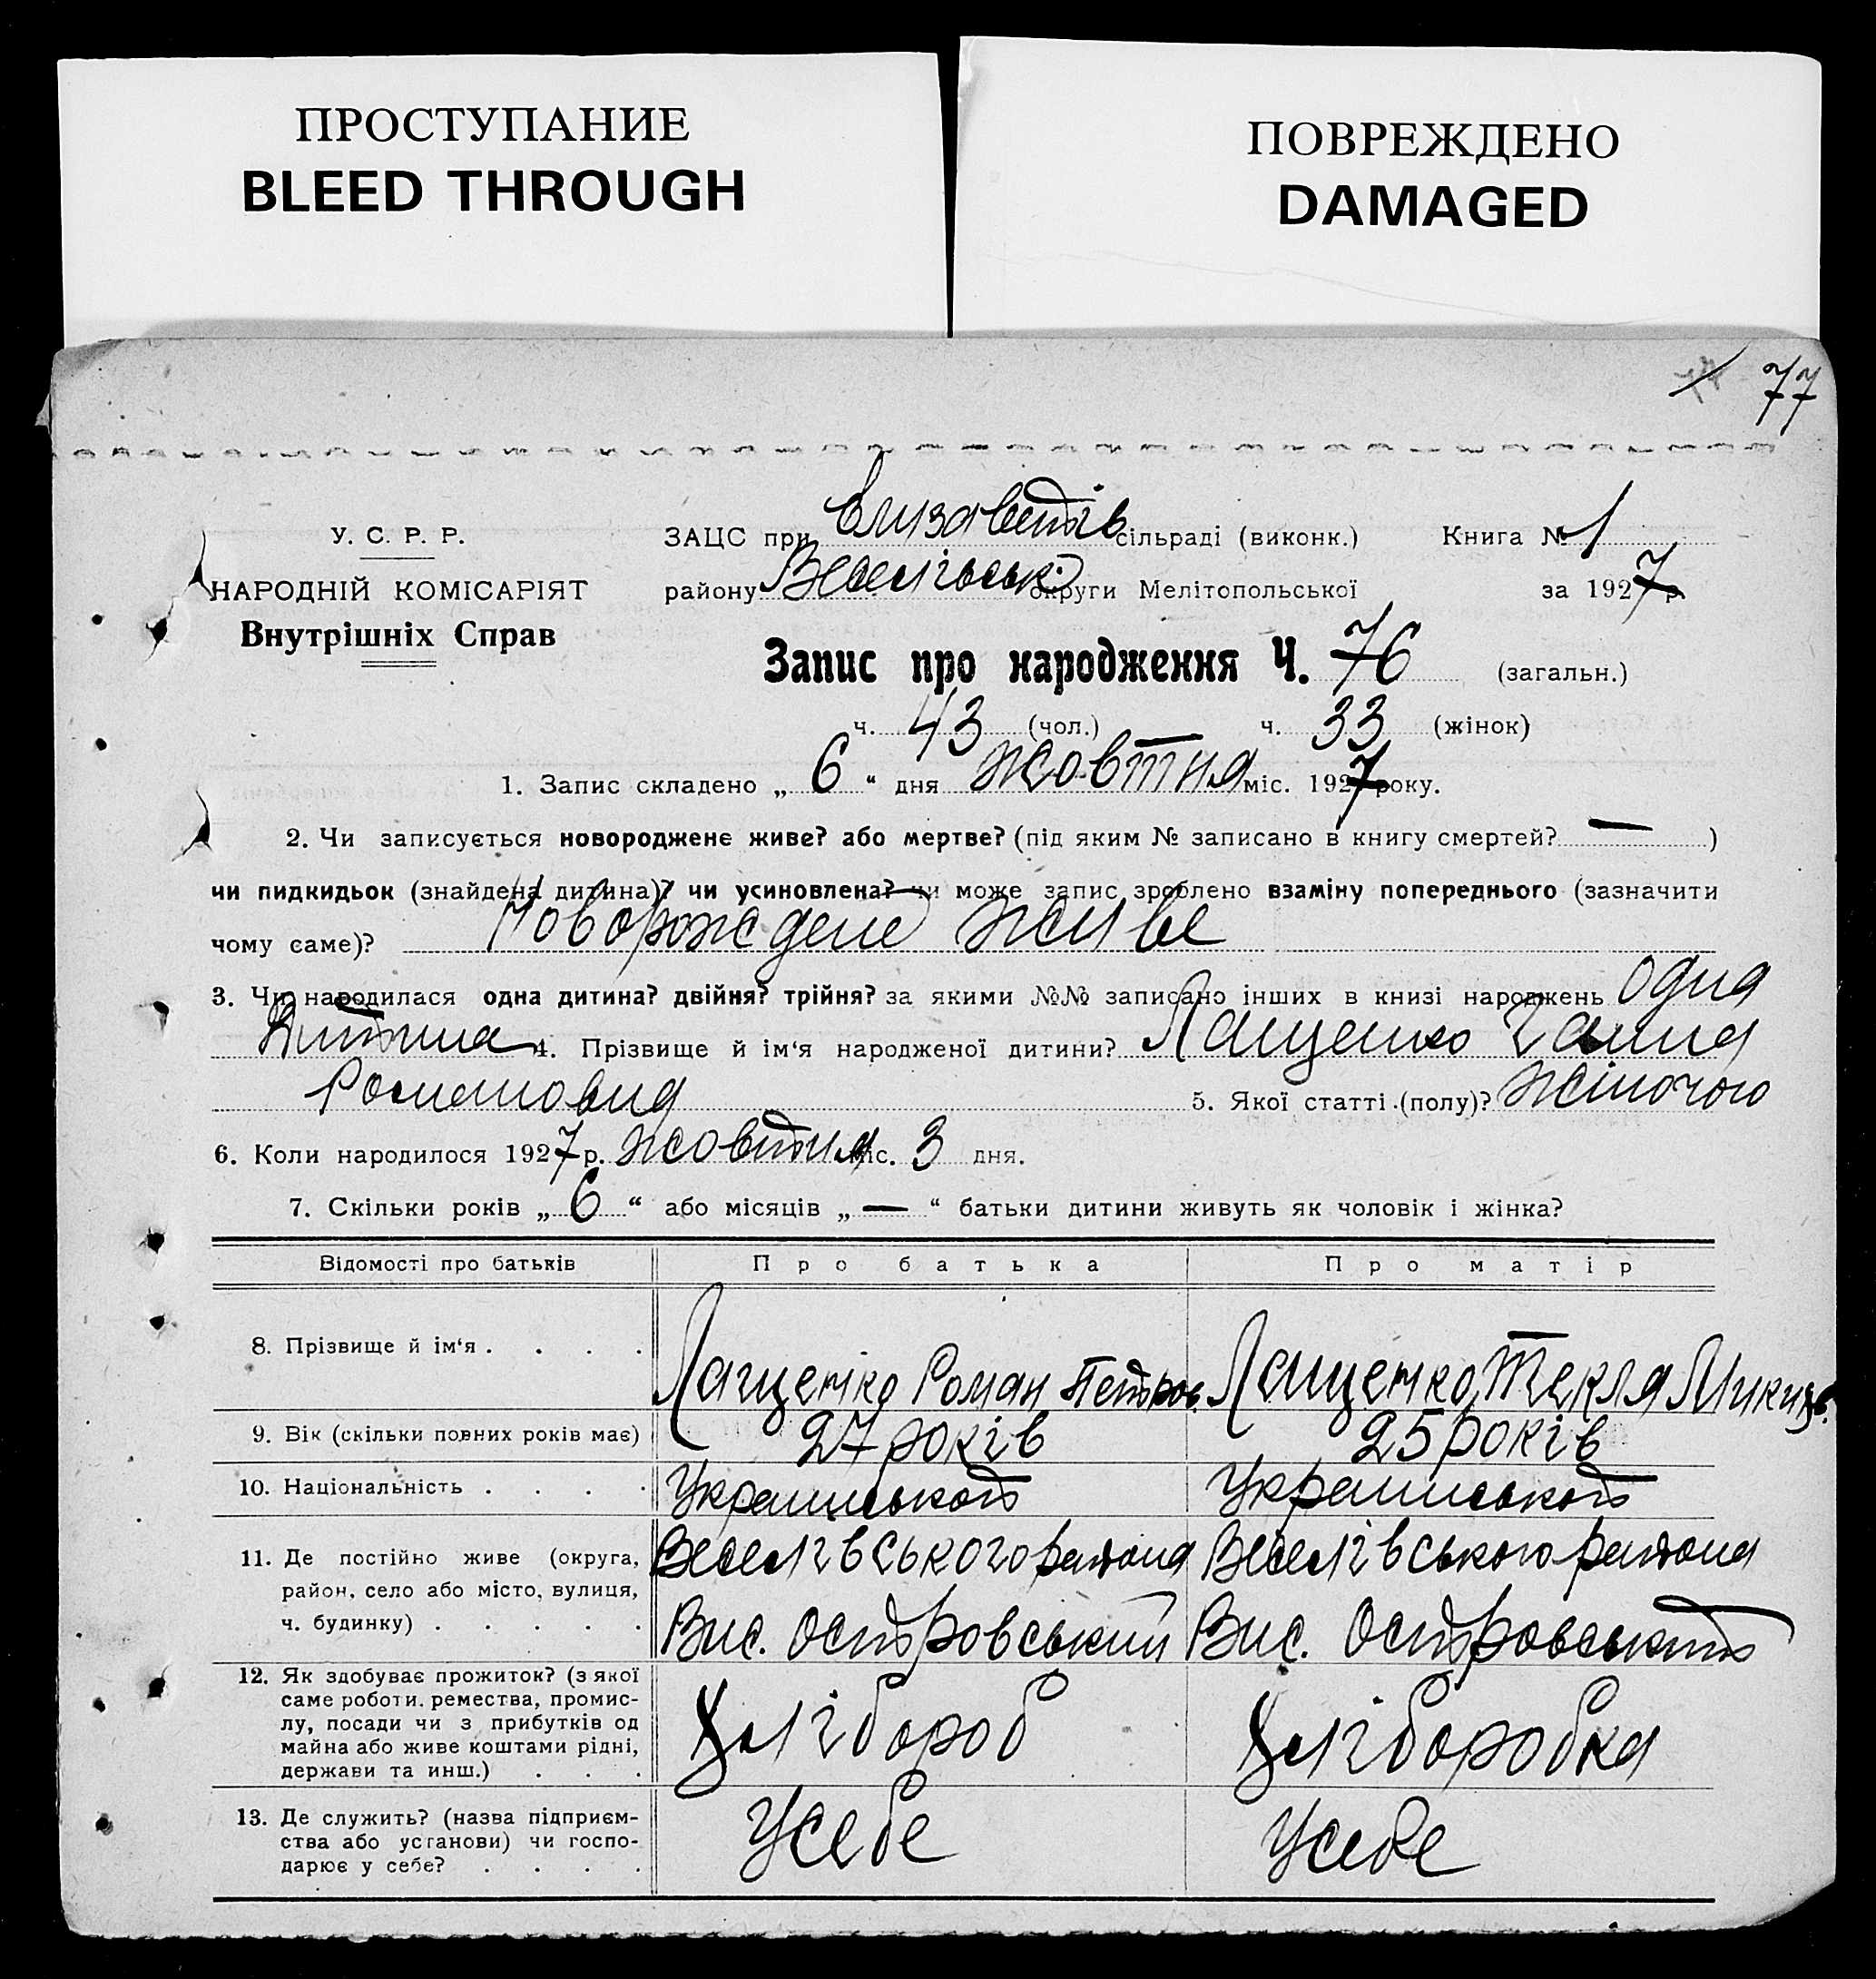 ПРОСТУПАНИЕ
BLEED THROUGH
ПОВРЕЖДЕНО
DAMAGED
77
У. С. Р. Р.
НАРОДНІЙ КОМІСАРІЯТ
Внутрішніх Справ
ЗАЦС при Єлизаветів сільраді (виконк.) Книга № 1
району Веселівській округи Мелітопольської за 1927 р.
Запис про народження Ч. 76 (загальн.)
ч. 43 (чол.) ч. 33 (жінок)
1. Запис складено „ 6 “ дня жовтня міс. 1927 року.
2. Чи записується новороджене живе? або мертве? (під яким № записано в книгу смертей? — )
чи пидкидьок (знайдена дитина)? чи усиновлена? чи може запис зроблено взаміну попереднього (зазначити
чому саме)? Новорождене живе
3. Чи народилася одна дитина? двійня? трійня? за якими №№ записано інших в книзі народжень одна
дитина 4. Прізвище й ім'я народженої дитини? Лащенко Галина
Романовна 5. Якої статті (полу)? жіночого
6. Коли народилося 1927 р. жовтня міс. 3 дня.
7. Скільки років „ 6 “ або місяців „ — “ батьки дитини живуть як чоловік і жінка?
Відомості про батьків Про батька Про матір
8. Прізвище й ім‘я . . . . Лащенко Роман Петров. Лащенко Текля Микит.
9. Вік (скільки повних років має) 27 років 25 років
10. Національність . . . . Украинського Украинського
11. Де постійно живе (округа, Веселівського района Веселівського района
район, село або місто, вулиця,
ч. будинку) . . . . . Вис. Островський Вис. Островський
12. Як здобуває прожиток? (з якої
саме роботи. ремества, промис-
лу, посади чи з прибутків од Хлібороб Хліборобка
майна або живе коштами рідні,
держави та инш.) . . .
13. Де служить? (назва підприєм- Усебе Усебе
ства або установи) чи госпо-
дарює у себе? . . . .